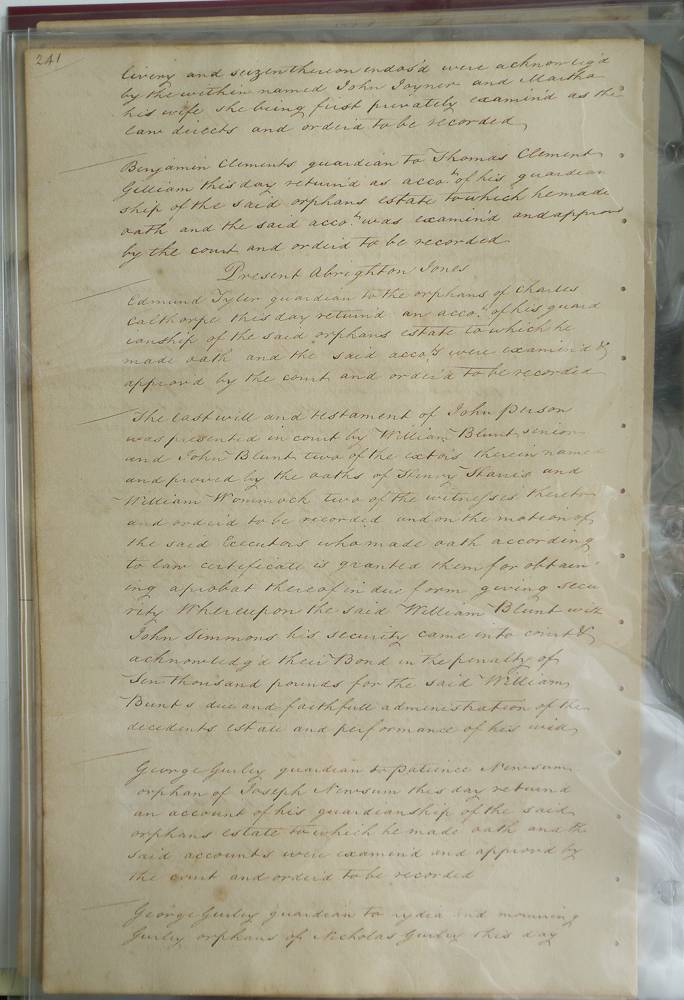 241
livery and seizen thereon endos'd were acknowleg'd
by the within named John Joyner and Martha
his wife she being first privately examin'd as the
law directs and order'd to be recorded
Benjamin Clements guardian to Thomas Clement
Gilliam this day return'd as acco.t of his guardian
ship of the said orphans estate to which he made
oath and the said acco.ts was examin'd and approv
by the court and order'd to be recorded
Present Abrighton Jones
Edmund Tyler guardian to the orphans of Charles
Calthorpe this day return'd an acco.t of his guard
ianship of the said orphans estate to which he
made oath and the said acco.ts were examin'd &
approv'd by the court and order'd to be recorded
The last will and testament of John Person
was presented in court by William Blunt senior
and John Blunt two of the extors therein named
and proved by the oaths of Henry Harris and
William Wommock two of the witnesses thereto
and order'd to be recorded and on the motion of
the said Executors who made oath according
to law certificate is granted them for obtain
ing a probat thereof in due form giving secu
rity Whereupon the said William Blunt with
John Simmons his security came into court &
acknowledg'd their Bond in the penalty of
Ten thousand pounds for the said William
Bunts due and faithfull administration of the
decedents estate and performance of his will
George Gurley guardian to patience Newsum
orphan of Joseph Newsum this day return'd
an account of his guardianship of the said
orphans estate to which he made oath and the
said accounts were examin'd and approv'd by
the court and order'd to be recorded
George Gurley guardian to lydea and mourning
Gurley orphans of Nicholas Gurley this day